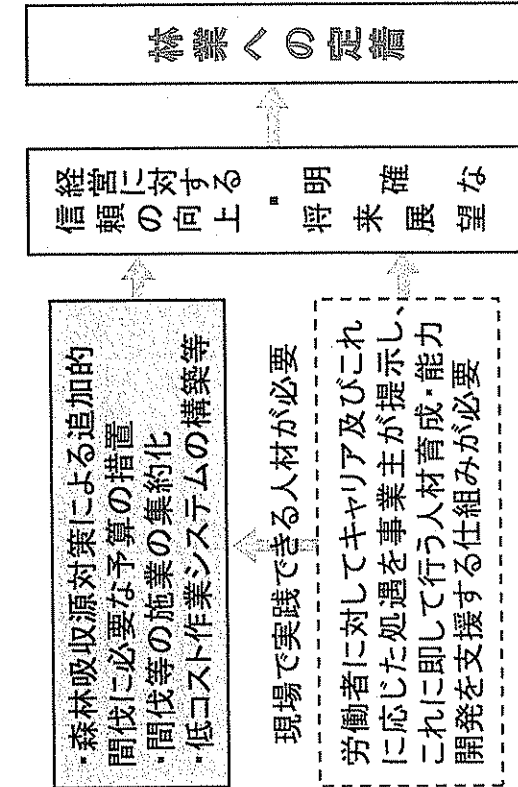 ・森林吸収源対策による追加的
間伐に必要な予算の措置
・間伐等の施業の集約化
・低コスト作業システムの構築等
現場で実践できる人材が必要
労働者に対してキャリア及びこれ
に応じた処遇を事業主が提示し、
これに即して行う人材育成・能力
開発を支援する仕組みが必要
経営に対する
信頼の向上
・
明確な
将来展望
林業への定着